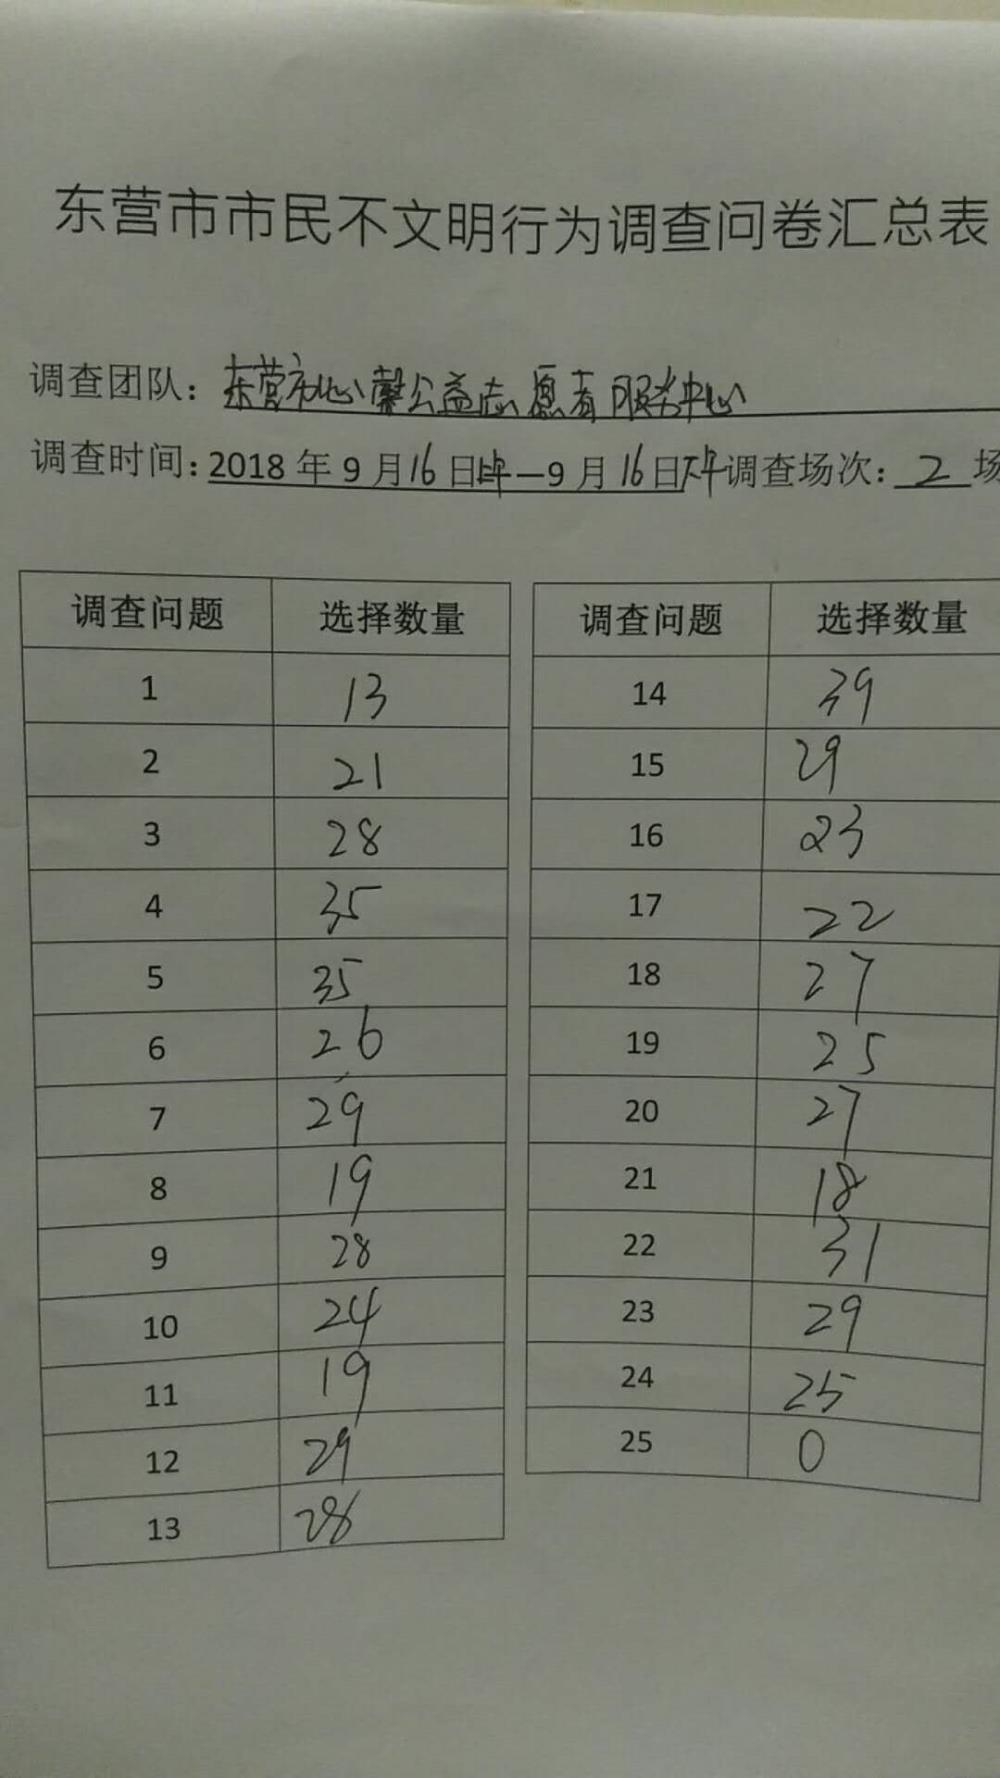 东营市市民不文明行为调查问卷汇总表
调查团队：东营市心馨公益志愿者服务中心
调查时间：2018年9月16日上午—9月16日下午 调查场次：2场
调查问题 选择数量 调查问题 选择数量
1 13 14 39
2 21 15 29
3 28 16 23
4 35 17 22
5 35 18 27
6 26 19 25
7 29 20 27
8 19 21 18
9 28 22 31
10 24 23 29
11 19 24 25
12 29 25 0
13 28